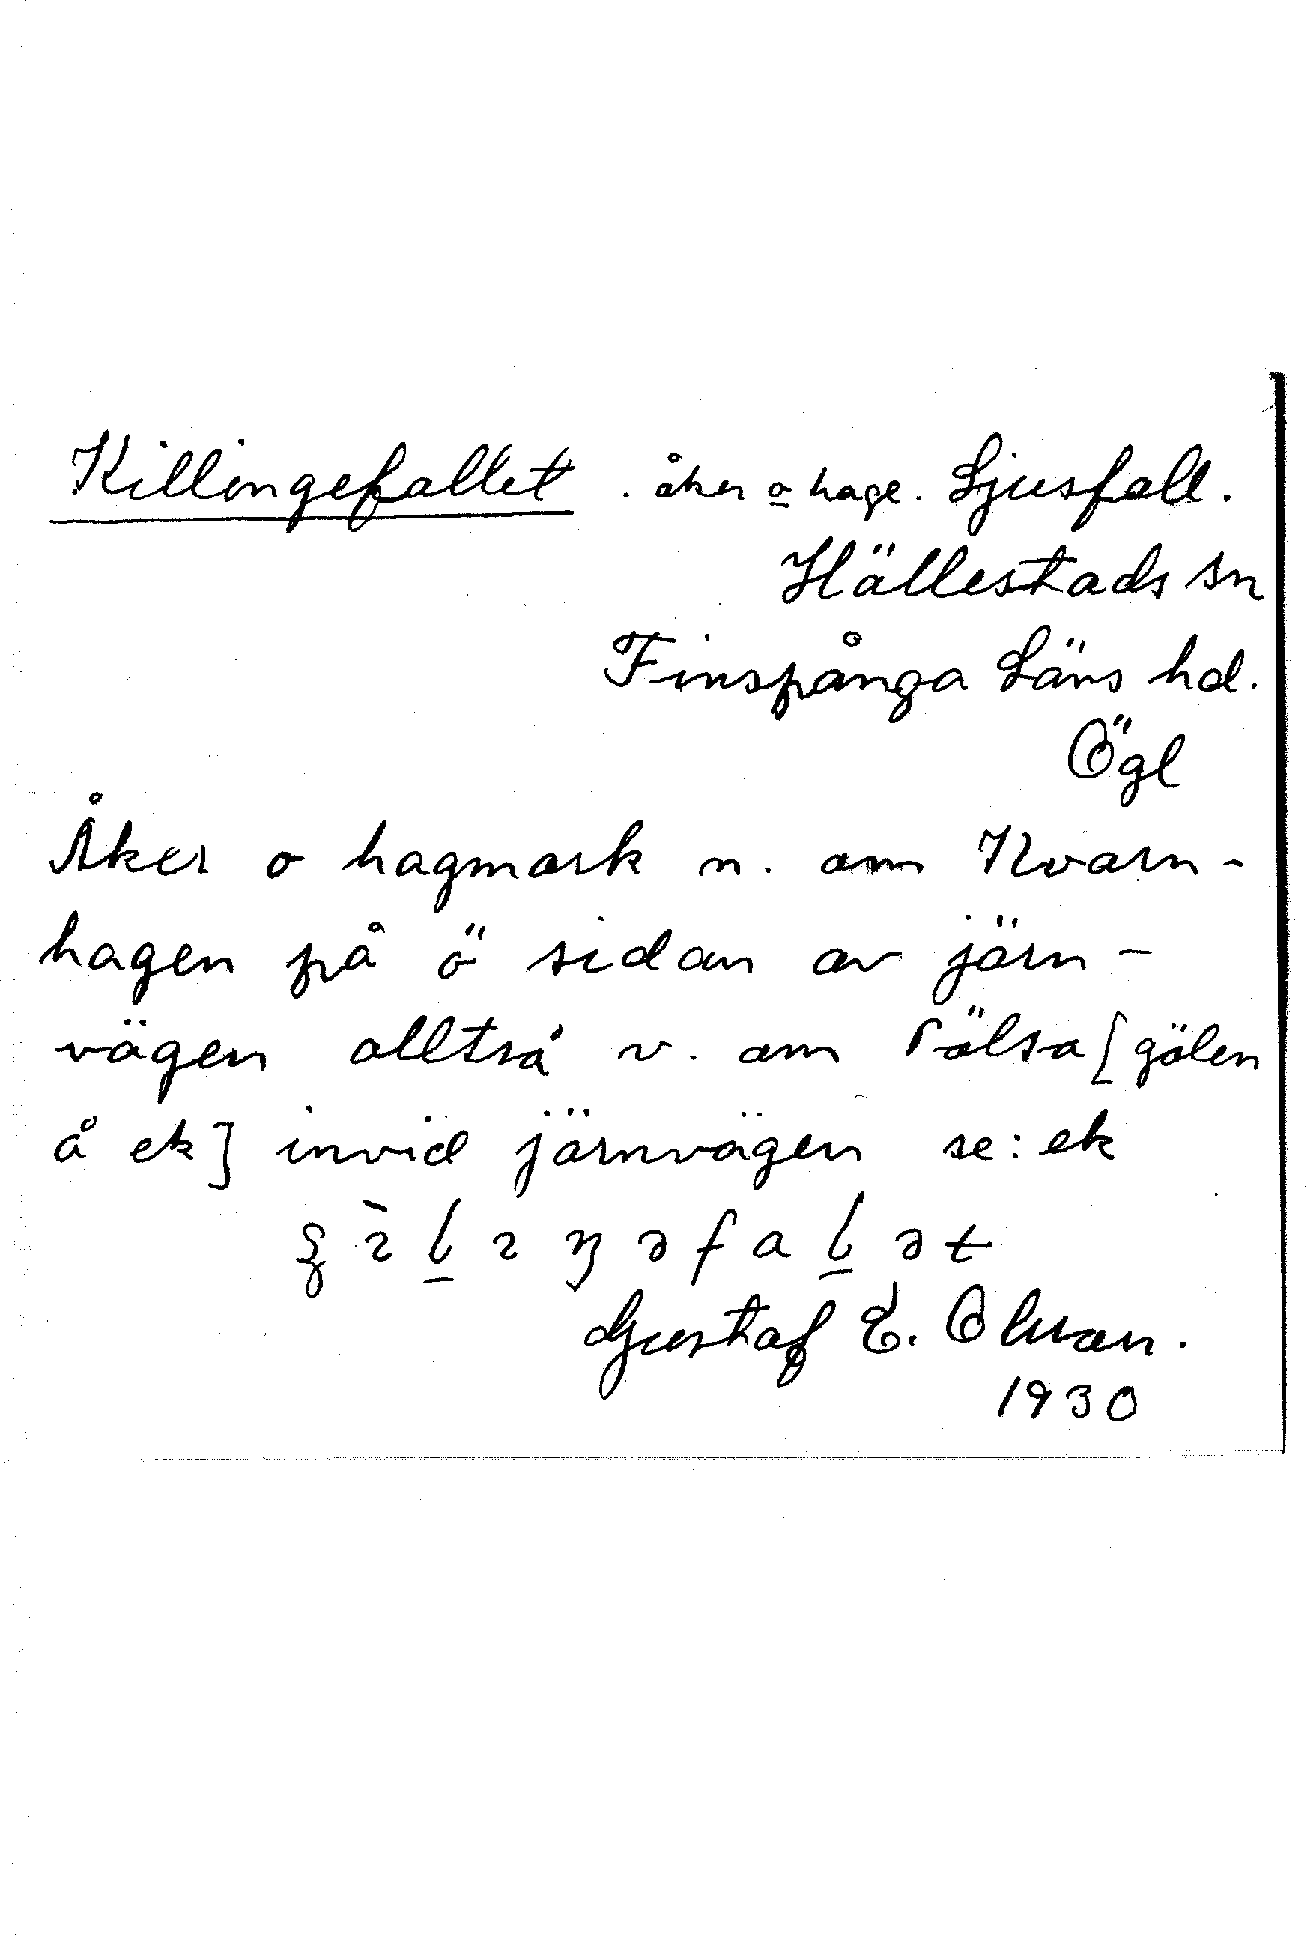 Killingefallet . åker o hage. Ljusfall.
Hällestads sn
Finspånga Läns hd.
Ögl
Åker o hagmark n. om Kvarn-
hagen på ö sidan av järn-
vägen alltså v. om [gölen
å ek] invid järnvägen se: ek
Gustaf E. Olsson.
1930